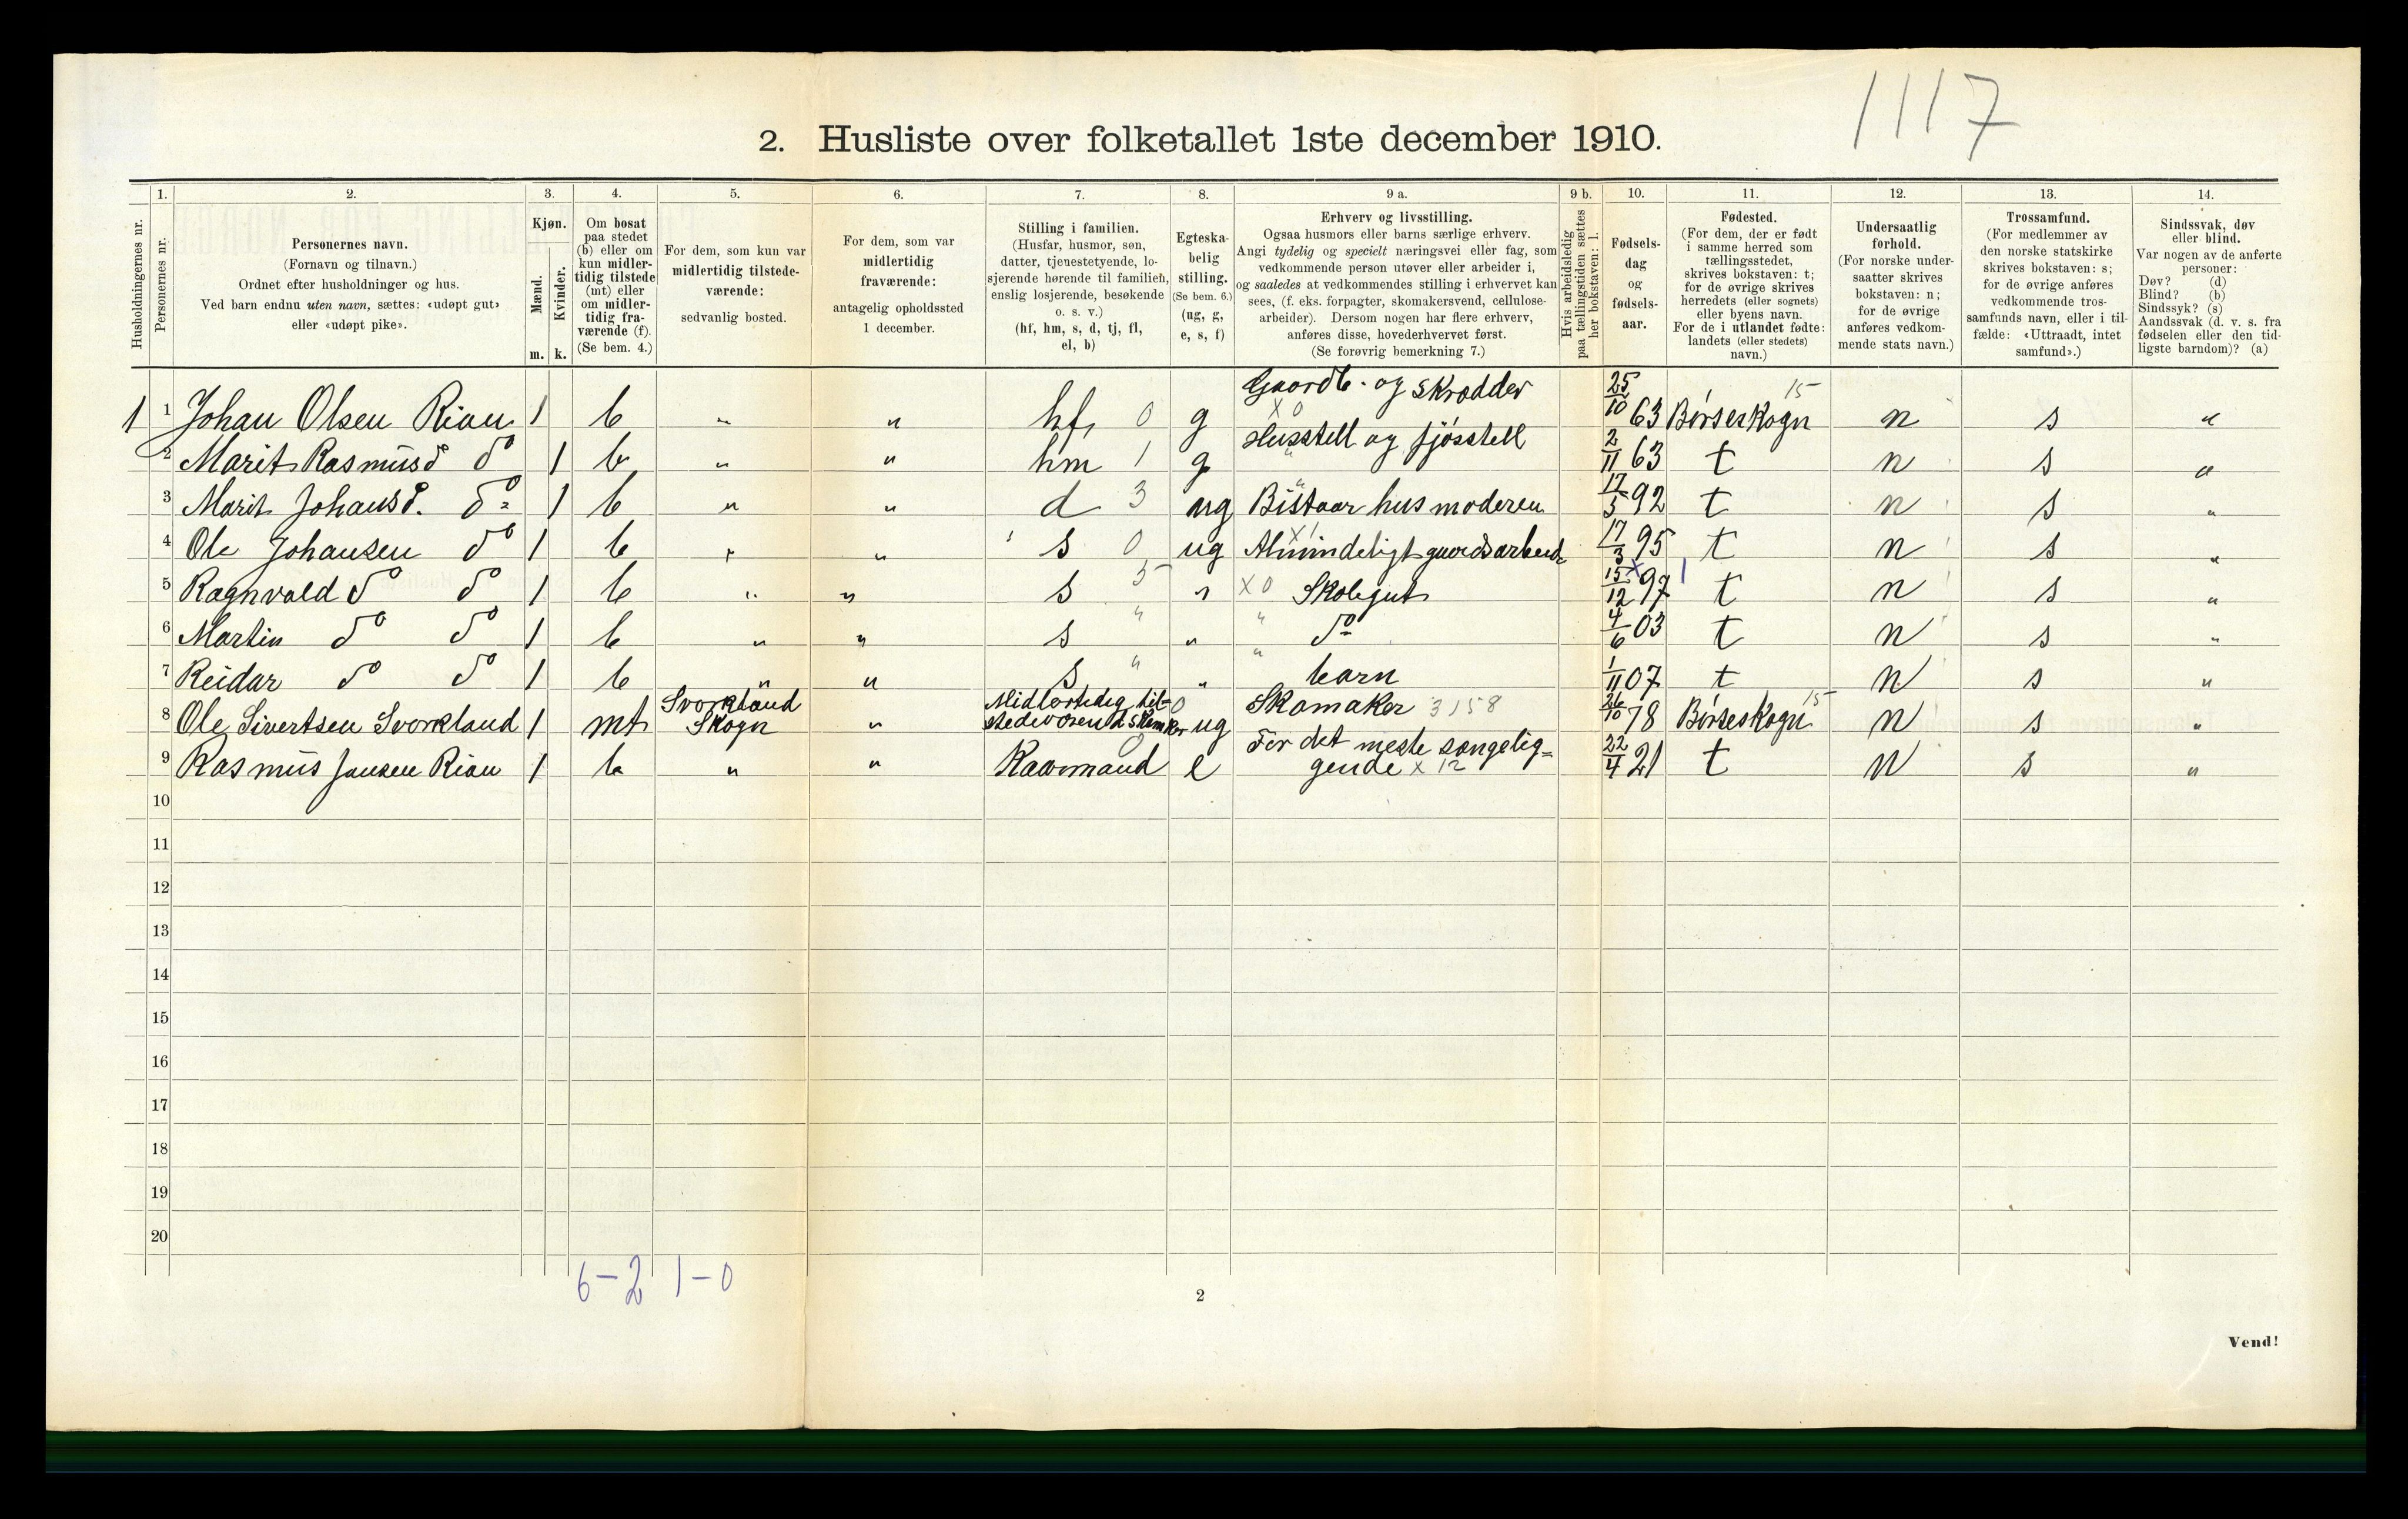 1117
2. Husliste over folketallet 1ste december 1910.
1. 2. 3. 4. 5. 6. 7. 8. 9 a. 9 b. 10. 11. 12. 13. 14.
Husholdningernes nr.
Personernes nr.
Personernes navn.
(Fornavn og tilnavn.)
Ordnet efter husholdninger og hus.
Ved barn endnu uten navn, sættes: «udøpt gut»
eller «udøpt pike».
Kjøn.
Mænd.
Kvinder.
m. k.
Om bosat
paa stedet
(b) eller om
kun midler-
tidig tilstede
(mt) eller
om midler-
tidig fra-
værende (f).
(Se bem. 4.)
For dem, som kun var
midlertidig tilstede-
værende:
sedvanlig bosted.
For dem, som var
midlertidig
fraværende:
antagelig opholdssted
1 december.
Stilling i familien.
(Husfar, husmor, søn,
datter, tjenestetyende, lo-
sjerende hørende til familien,
enslig losjerende, besøkende
o. s. v.)
(hf, hm, s, d, tj, fl,
el, b)
Egteska-
belig
stilling.
(Se bem. 6.)
(ug, g,
e, s, f)
Erhverv og livsstilling.
Ogsaa husmors eller barns særlige erhverv.
Angi tydelig og specielt næringsvei eller fag, som
vedkommende person utøver eller arbeider i,
og saaledes at vedkommendes stilling i erhvervet kan
sees, (f. eks. forpagter, skomakersvend, cellulose-
arbeider). Dersom nogen har flere erhverv,
anføres disse, hovederhvervet først.
(Se forøvrig bemerkning 7.)
Hvis arbeidsledig
paa tællingstiden sættes
her bokstaven: l.
Fødsels-
dag
og
fødsels-
aar.
Fødested.
(For dem, der er født
i samme herred som
tællingsstedet,
skrives bokstaven: t;
for de øvrige skrives
herredets (eller sognets)
eller byens navn.
For de i utlandet fødte:
landets (eller stedets)
navn.)
Undersaatlig
forhold.
(For norske under-
saatter skrives
bokstaven: n;
for de øvrige
anføres vedkom-
mende stats navn.)
Trossamfund.
(For medlemmer av
den norske statskirke
skrives bokstaven: s;
for de øvrige anføres
vedkommende tros-
samfunds navn, eller i til-
fælde: «Uttraadt, intet
samfund».)
Sindssvak, døv
eller blind.
Var nogen av de anførte
personer:
Døv? (d)
Blind? (b)
Sindssyk? (s)
Aandssvak (d. v. s. fra
fødselen eller den tid-
ligste barndom)? (a)
1 1 Johan Olsen Rian 1 b „ „ hf 0 g Gaardb. og skrædder x 0 25/10 63 Børseskogn 15 n s „
2 Marit Rasmusd do 1 b „ „ hm 1 g Husstell og fjösstell „ 2/11 63 t n s „
3 Marit Johansd. do 1 b „ „ d 3 ug Bistaar husmoderen „ 17/5 92 t n s „
4 Ole Johansen do 1 b „ „ s 0 ug Almindeligt gaardsarbeide x 1 17/3 95 t n s „
5 Ragnvald do do 1 b „ „ s 5 „ x 0 Skolegut 15/12 97 t n s „
6 Martin do do 1 b „ „ s „ „ „ do 4/6 03 t n s „
7 Reidar do do 1 b „ „ s „ „ „ barn 1/11 07 t n s „
8 Ole Sivertsen Svorkland 1 mt Svorkland Skogn „ 0 ug Skomaker 3158 26/10 78 Børseskogn 15 n s „
9 Rasmus Jansen Rian 1 b „ „ Kaarmand 0 e For det meste sængelig=
gende x 12 22/4 21 t n s „
10
11
12
13
14
15
16
17
18
19
20
6-2 1-0
2
Vend!